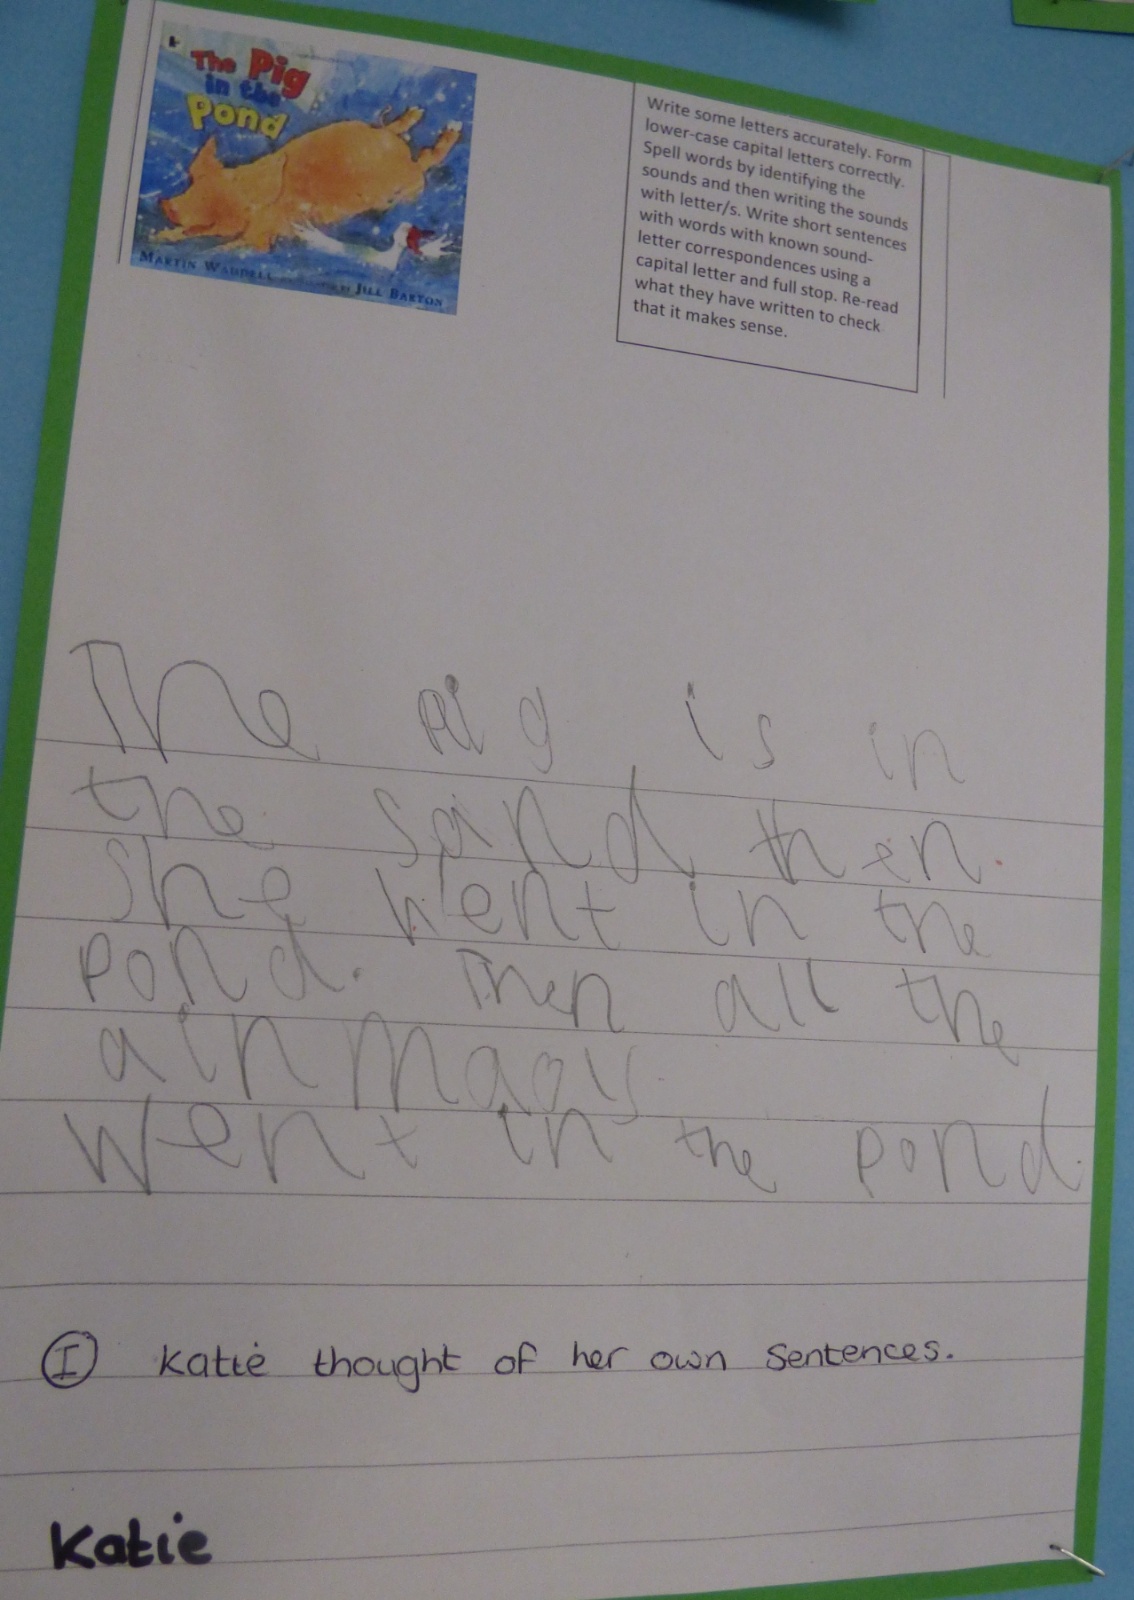 The Pig
in the
Pond
MARTIN WADDELL
JILL BARTON
Write some letters accurately. Form
lower-case capital letters correctly.
Spell words by identifying the
sounds and then writing the sounds
with letter/s. Write short sentences
with words with known sound-
letter correspondences using a
capital letter and full stop. Re-read
what they have written to check
that it makes sense.
The pig is in
the sand then.
She went in the
pond. Then all the
ainmaols
went in the pond.
I Katie thought of her own sentences.
Katie